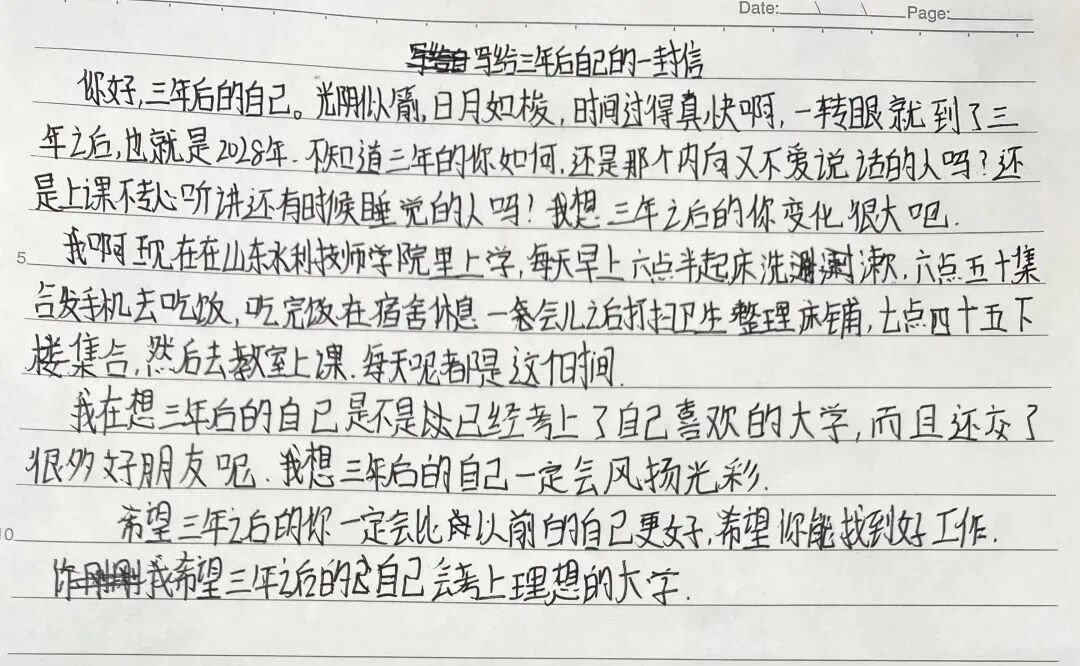 Date: \ \ Page:
写给三年后自己的一封信
你好,三年后的自己。光阴似箭,日月如梭,时间过得真快啊,一转眼就到了三
年之后,也就是2028年.不知道三年的你如何,还是那个内向又不爱说话的人吗?还
是上课不专心听讲还有时候睡觉的人吗?我想三年之后的你变化很大吧.
5 我啊现在在山东水利技师学院里上学,每天早上六点半起床洗漱,六点五十集
合发手机去吃饭,吃完饭在宿舍休息一会儿之后打扫卫生整理床铺,七点四十五下
楼集合,然后去教室上课.每天呢都是这个时间.
我在想三年后的自己是不是已经考上了自己喜欢的大学,而且还交了
很多好朋友呢.我想三年后的自己一定会风扬光彩.
10 希望三年之后的你一定会比以前的自己更好,希望你能找到好工作.
我希望三年之后的自己会考上理想的大学.